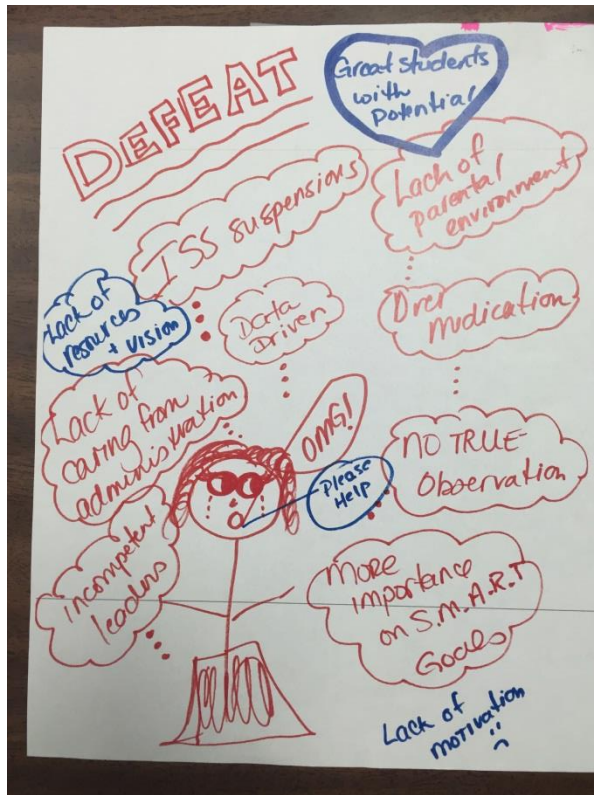 DEFEAT
Great students
with
Potential
ISS suspensions
Lack of
parental
environment
Lack of
resources
+ vision
Data
Driven
Over
medication
Lack of
caring from
administration
OMG!
Please
Help
NO TRUE
Observation
incompetent
leaders
More
importance
on S.M.A.R.T
Goals
Lack of
motivation